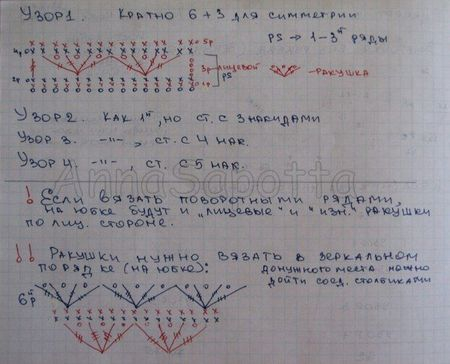 Узор 1. Кратно 6 + 3 для симметрии
PS → 1 - 3й ряды
4р
5р
3р - лицевой
PS
- ракушка
2р
1р
Узор 2. Как 1й, но ст. с 3 накидами
Узор 3. -"- , ст. с 4 нак.
Узор 4. -"- , ст. с 5 нак.
AnnaSabotta
! Если вязать поворотными рядами,
на юбке будут и „лицевые" и "изн." ракушки
по лиц. стороне.
!! Ракушки нужно вязать в зеркальном
порядке (на юбке):
до нужного места можно
дойти соед. столбиками
6й
р